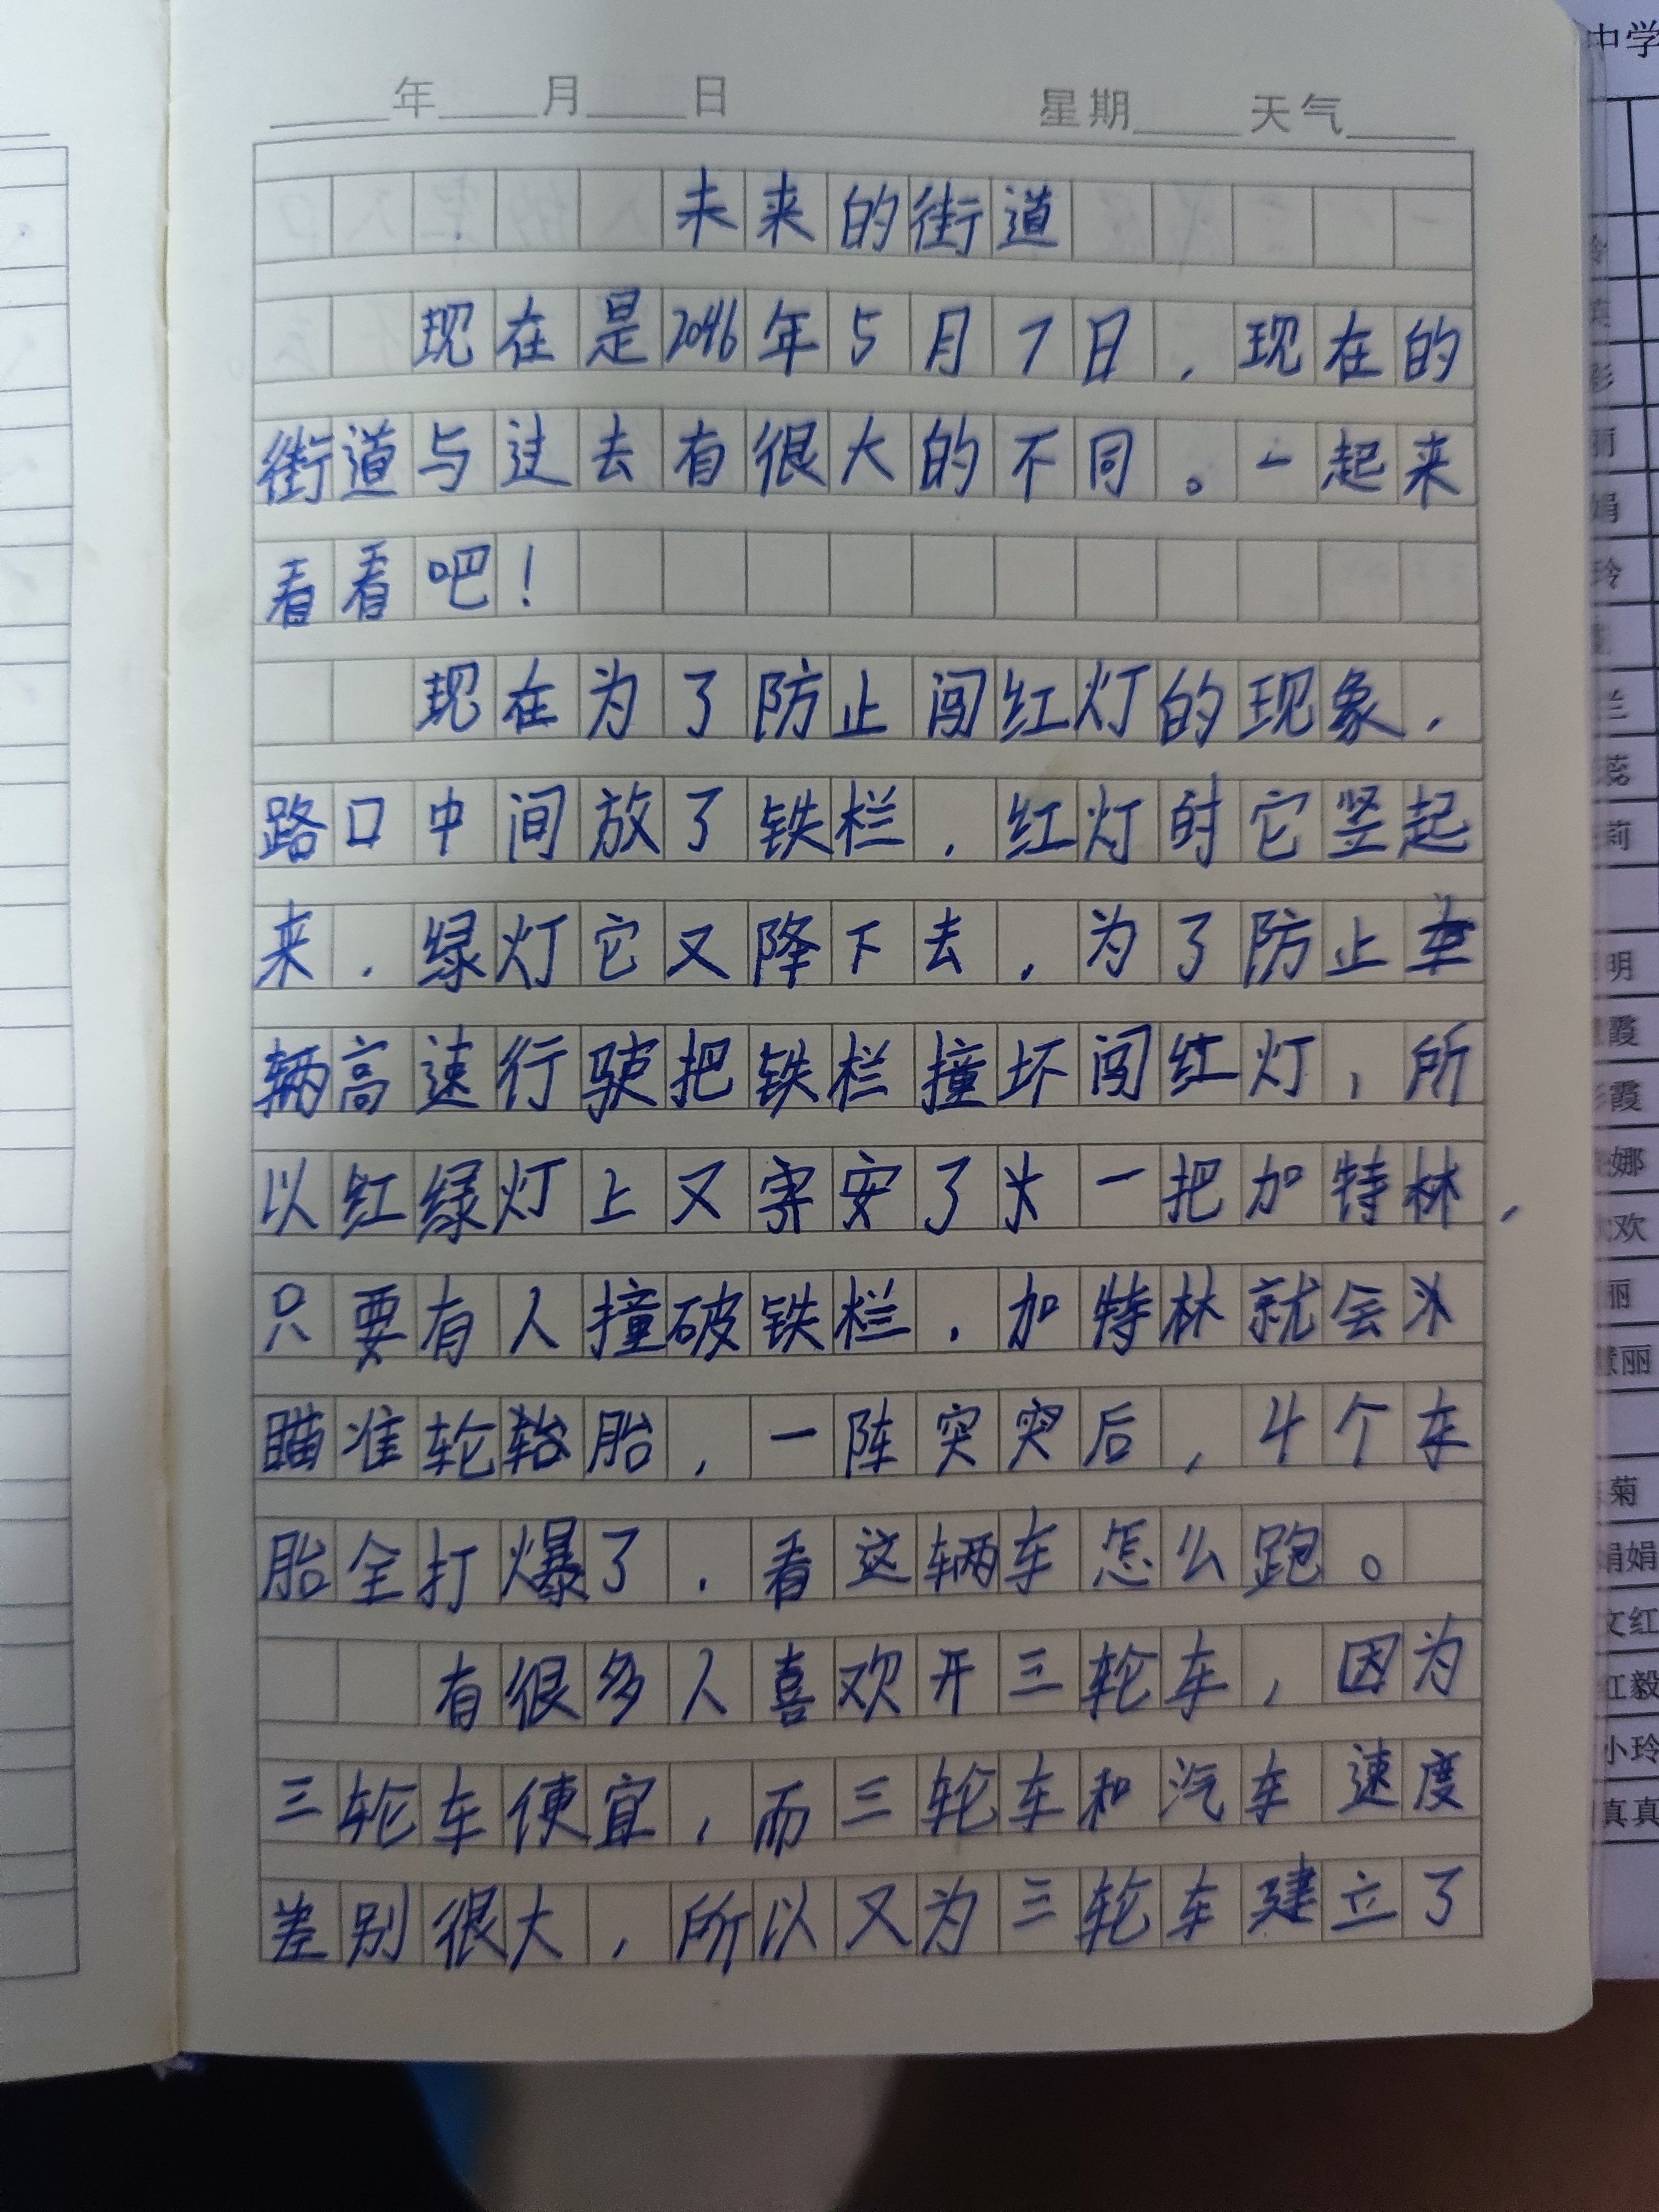 年 月 日 星期 天气
未来的街道
现在是2046年5月7日，现在的
街道与过去有很大的不同。一起来
看看吧！
现在为了防止闯红灯的现象，
路口中间放了铁栏，红灯时它竖起
来，绿灯它又降下去，为了防止车
辆高速行驶把铁栏撞坏闯红灯，所
以红绿灯上又安了一把加特林，
只要有人撞破铁栏，加特林就会
瞄准轮胎，一阵突突后，4个车
胎全打爆了，看这辆车怎么跑。
有很多人喜欢开三轮车，因为
三轮车便宜，而三轮车和汽车速度
差别很大，所以又为三轮车建立了
中学
玲
丽
娟
玲
兰
蕊
莉
明
霞
霞
娜
欢
丽
慧丽
菊
娟娟
文红
红毅
小玲
真真